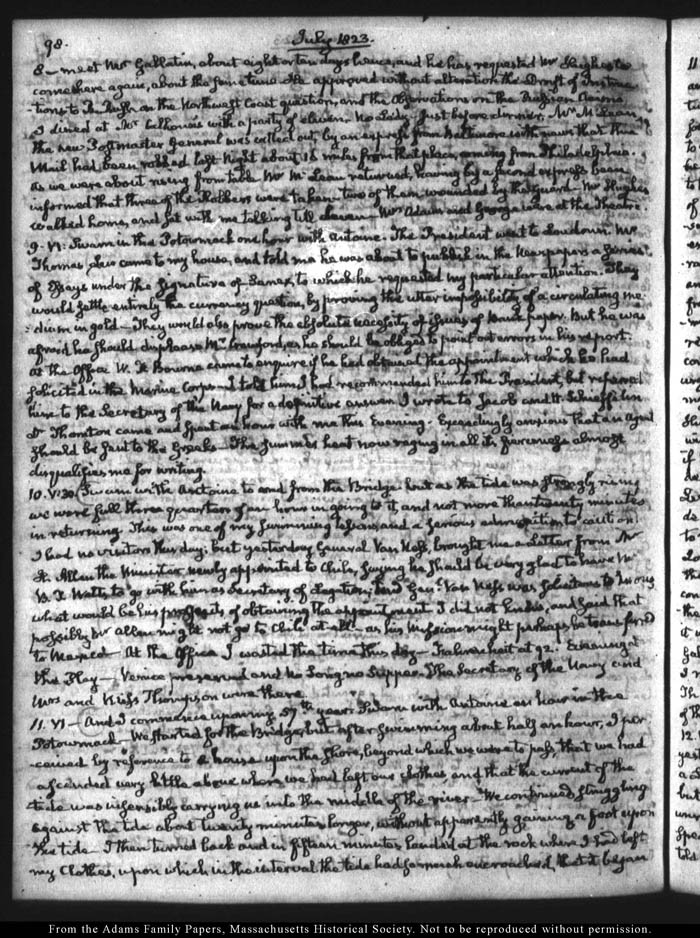 98.
July 1823.
8— meet Mr Gallatin, about eight or ten days hence, and he has requested Mr Hughes to
come here again, about the same time. He approved without alteration the Draft of Instruc
-tions to R. Rush on the Northwest Coast question, and the Observations on the Russian Claims
I dined at Mr Calhoun's with a party of eleven. No Lady. Just before dinner, Mr McLean,
the new Postmaster General was called out, by an express from Baltimore with news that the
Mail had been robbed last Night about 16 miles from that place, coming from Philadelphia.
As we were about rising from table Mr McLean returned, having by a second express been
informed that three of the Robbers were taken—two of them wounded by the guard—Mr Hughes
walked home, and sat with me talking till eleven—Mrs Adams and George were at the Theatre.
9. VI: Swam in the Potowmack one hour with Antoine. The President went to Loudoun. Mr
Thomas Law came to my house, and told me he was about to publish in the Newspapers a Series
of Essays under the signature of to which he requested my particular attention. They
would settle entirely the currency question, by proving the utter impossibility of a circulating me
-dium in gold—They would also prove the absolute necessity of issues of Bank paper. But he was
afraid he should displease Mr Crawford, as he should be obliged to point out errors in his report.
At the Office W. Bourne came to enquire if he had obtained the appointment which he had
solicited in the Marine Corps—I told him I had recommended him to the President, but referred
him to the Secretary of the Navy for a definitive answer. I wrote to Jacob and H. Schieffelin
Dr Thornton came and spent an hour with me this Evening: Exceedingly anxious that an Agent
should be sent to the Greeks—The Summer heat now raging in all its fierceness almost
disqualifies me for writing.
10. V:30. Swam with Antoine to and from the Bridge but as the tide was strongly rising
we were full three quarters of an hour in going to it, and not more than twenty minutes
in returning. This was one of my swimming lessons and a serious admonition to caution
I had no visitors this day; but yesterday General Van Ness, brought me a Letter from Mr
H. Allen the Minister newly appointed to Chile, saying he should be very glad to have Mr
B. Watts, to go with him as Secretary of Legation; and Genl Van Ness was solicitous to know
what would be his prospects of obtaining the appointment. I did not know, and said that
possibly Mr Allen might not go to Chile at all—as his Mission might perhaps be transferred
to Mexico—At the Office I wasted the time this day—Fahrenheit at 92. Evening at
the Play—Venice preserved and No Song no Supper. The Secretary of the Navy and
Mrs and Miss Thompson were there.
11. VI—And I commence upon my 57th year. Swam with Antoine an hour in the
Potowmack—We started for the Bridge, but after swimming about half an hour, I per
-ceived by reference to a house upon the shore, beyond which we were to pass, that we had
ascended very little above where we had left our clothes and that the current of the
tide was insensibly carrying us into the middle of the river—We continued struggling
against the tide about twenty minutes longer, without apparently gaining a foot upon
the tide—I then turned back and in fifteen minutes landed at the rock where I had left
my Clothes, upon which in the interval the tide had so much encroached, that it began
From the Adams Family Papers, Massachusetts Historical Society. Not to be reproduced without permission.